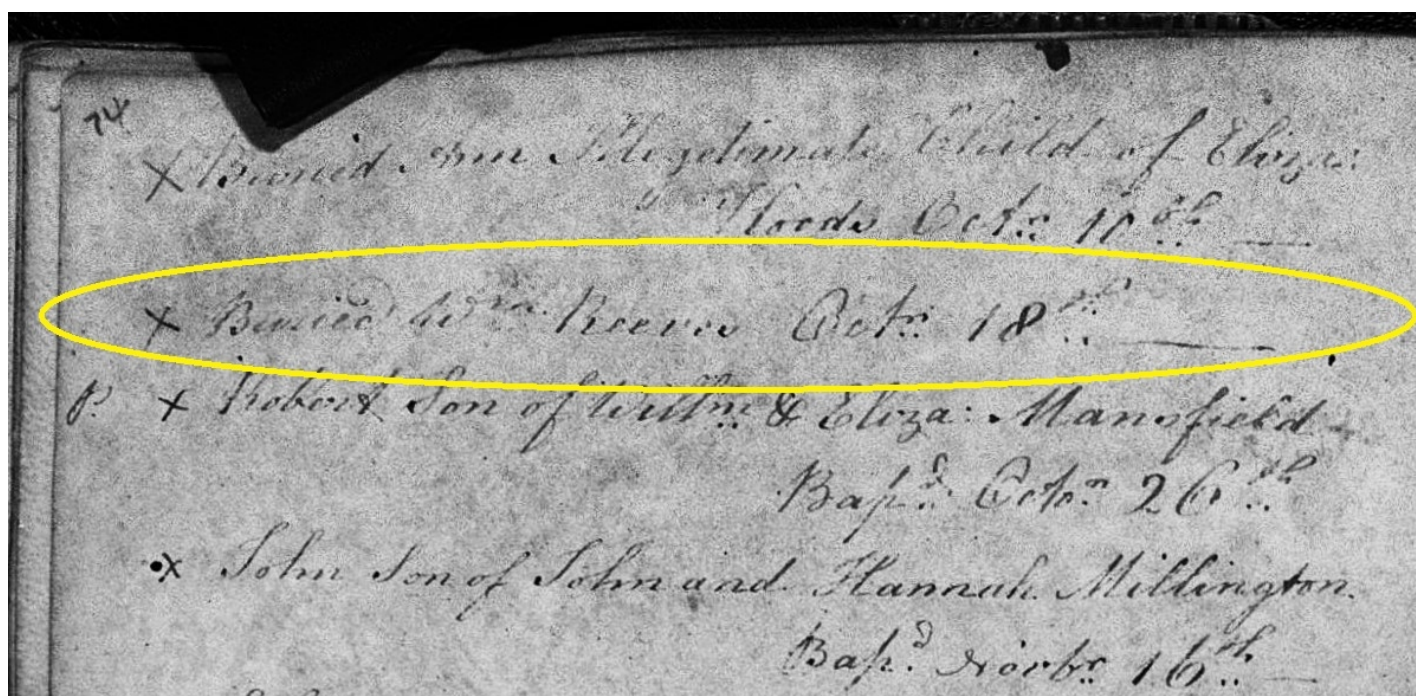 74
x Buried Ann Illegetimate Child of Eliza:
Woods Octr. 10th
x Buried Wm. Reeves Octr. 18th.
P. x Robert Son of Willm. & Eliza: Mansfield
Bapd. Octr. 26th.
x John Son of John and Hannah Millington.
Bapd. Novbr. 16th